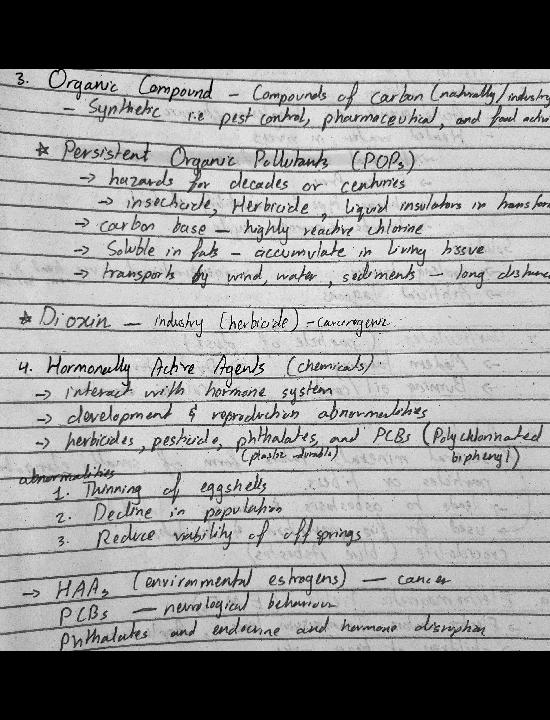 3. Organic Compound – Compounds of carbon (naturally/industry
– Synthetic i.e pest control, pharmaceutical, and food
* Persistent Organic Pollutants (POPs)
→ hazards for decades or centuries
→ insecticide, Herbicide, liquid insulators in transfor
→ carbon base – highly reactive chlorine
→ Soluble in fats – accumulate in living tissue
→ transports by wind, water, sediments – long distance
* Dioxin – industry (herbicide) – carcinogenic
4. Hormonally Active Agents (chemicals)
→ interact with hormone system
→ development & reproduction abnormalities
→ herbicides, pesticide, phthalates, and PCBs (Polychlorinated
(plastic durable) biphenyl)
abnormalities
1. Thinning of eggshells
2. Decline in population
3. Reduce viability of offsprings
→ HAAs (environmental estrogens) – cancer
PCBs – neurological behaviour
Phthalates and endocrine and hormone disruption